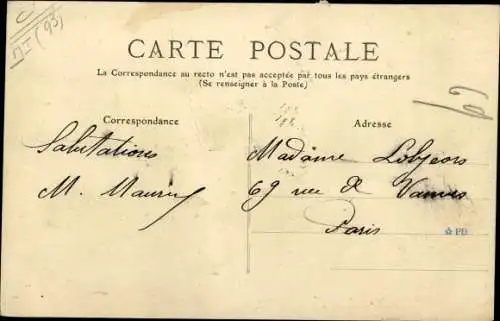 (93)
CARTE POSTALE
La Correspondance au recto n'est pas acceptée par tous les pays étrangers
(Se renseigner à la Poste)
Correspondance
Salutations
M. Maurin
Adresse
Madame
69 rue de Vanves
Paris
PD